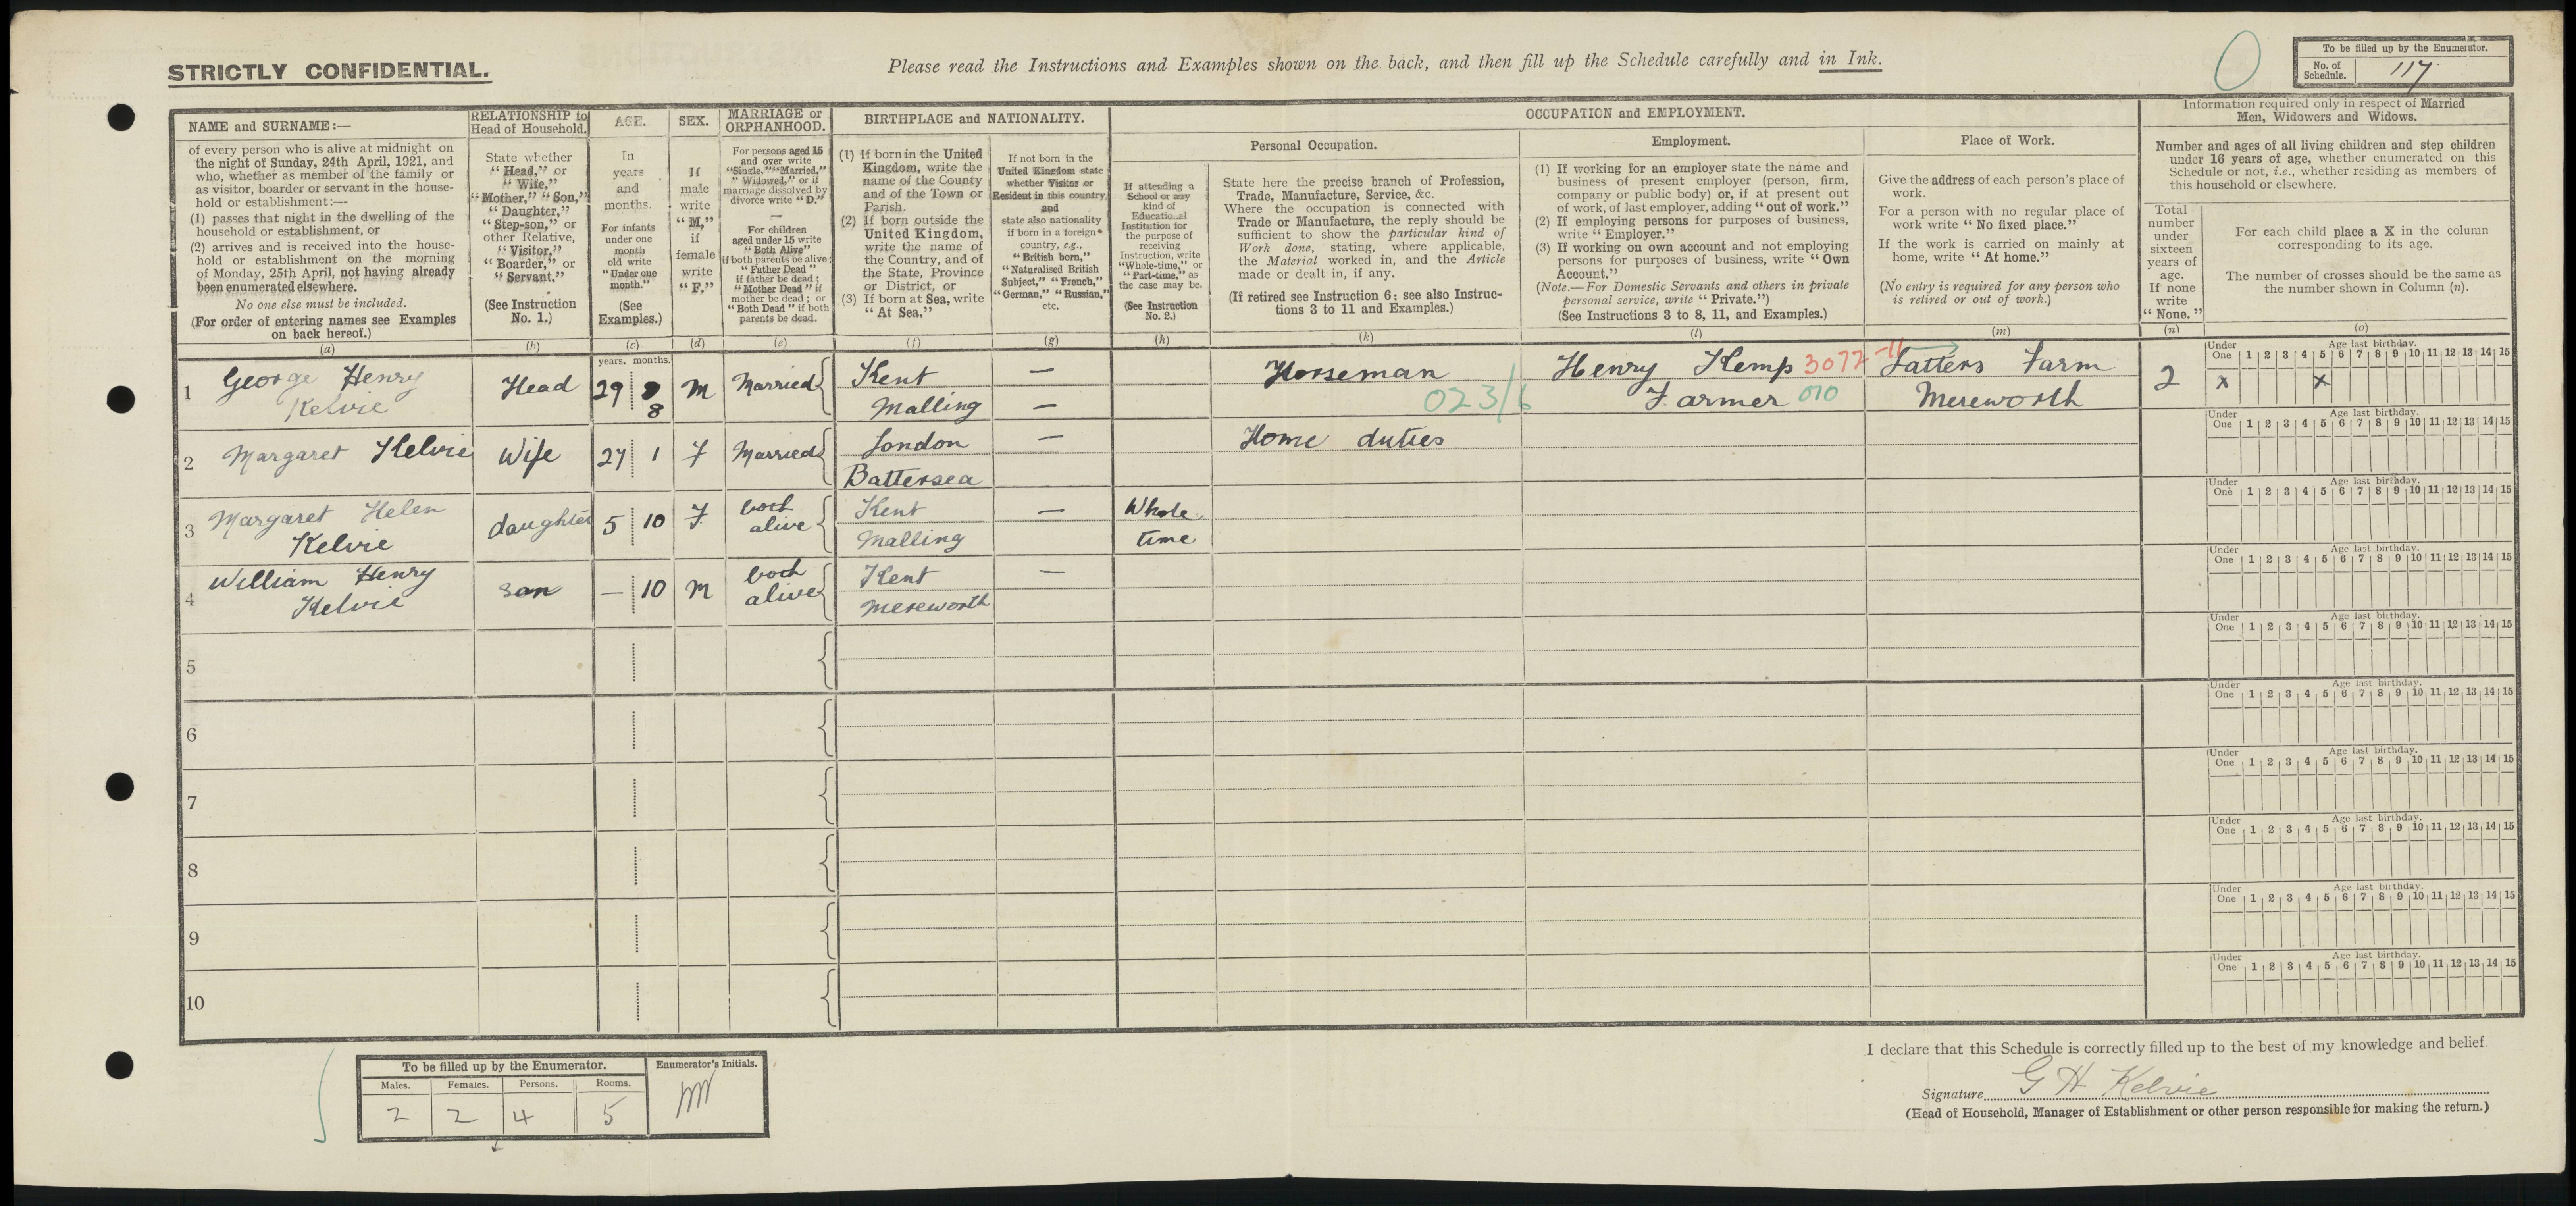 STRICTLY CONFIDENTIAL.
Please read the Instructions and Examples shown on the back, and then fill up the Schedule carefully and in Ink.
To be filled up by the Enumerator.
No. of Schedule. 117
NAME and SURNAME:—
of every person who is alive at midnight on
the night of Sunday, 24th April, 1921, and
who, whether as member of the family or
as visitor, boarder or servant in the house-
hold or establishment:—
(1) passes that night in the dwelling of the
household or establishment, or
(2) arrives and is received into the house-
hold or establishment on the morning
of Monday, 25th April, not having already
been enumerated elsewhere.
No one else must be included.
(For order of entering names see Examples
on back hereof.)
(a)
RELATIONSHIP to
Head of Household.
State whether
"Head," or
"Wife,"
"Mother," "Son,"
"Daughter,"
"Step-son," or
other Relative,
"Visitor,"
"Boarder," or
"Servant."
(See Instruction
No. 1.)
(b)
AGE.
In
years
and
months.
For infants
under one
month
old write
"Under one
month."
(See
Examples.)
(c)
SEX.
If
male
write
"M,"
if
female
write
"F."
(d)
MARRIAGE or
ORPHANHOOD.
For persons aged 15
and over write
"Single," "Married,"
"Widowed," or if
marriage dissolved by
divorce write "D."
—
For children
aged under 15 write
"Both Alive"
if both parents be alive;
"Father Dead"
if father be dead;
"Mother Dead" if
mother be dead; or
"Both Dead" if both
parents be dead.
(e)
BIRTHPLACE and NATIONALITY.
(1) If born in the United
Kingdom, write the
name of the County
and of the Town or
Parish.
(2) If born outside the
United Kingdom,
write the name of
the Country, and of
the State, Province
or District, or
(3) If born at Sea, write
"At Sea."
(f)
If not born in the
United Kingdom state
whether Visitor or
Resident in this country,
and
state also nationality
if born in a foreign
country, e.g.,
"British born,"
"Naturalised British
Subject," "French,"
"German," "Russian,"
etc.
(g)
OCCUPATION and EMPLOYMENT.
If attending a
School or any
kind of
Educational
Institution for
the purpose of
receiving
Instruction, write
"Whole-time," or
"Part-time," as
the case may be.
(See Instruction
No. 2.)
(h)
Personal Occupation.
State here the precise branch of Profession,
Trade, Manufacture, Service, &c.
Where the occupation is connected with
Trade or Manufacture, the reply should be
sufficient to show the particular kind of
Work done, stating, where applicable,
the Material worked in, and the Article
made or dealt in, if any.
(If retired see Instruction 6; see also Instruc-
tions 3 to 11 and Examples.)
(k)
Employment.
(1) If working for an employer state the name and
business of present employer (person, firm,
company or public body) or, if at present out
of work, of last employer, adding "out of work."
(2) If employing persons for purposes of business,
write "Employer."
(3) If working on own account and not employing
persons for purposes of business, write "Own
Account."
(Note.—For Domestic Servants and others in private
personal service, write "Private.")
(See Instructions 3 to 8, 11, and Examples.)
(l)
Place of Work.
Give the address of each person's place of
work.
For a person with no regular place of
work write "No fixed place."
If the work is carried on mainly at
home, write "At home."
(No entry is required for any person who
is retired or out of work.)
(m)
Information required only in respect of Married
Men, Widowers and Widows.
Number and ages of all living children and step children
under 16 years of age, whether enumerated on this
Schedule or not, i.e., whether residing as members of
this household or elsewhere.
Total
number
under
sixteen
years of
age.
If none
write
"None."
(n)
For each child place a X in the column
corresponding to its age.
The number of crosses should be the same as
the number shown in Column (n).
(o)
years. months.
Under One Age last birthday. 1 2 3 4 5 6 7 8 9 10 11 12 13 14 15
1 George Henry Kelvie Head 29 8 M Married Kent Malling — — Horseman 023/6 Henry Kemp 3077-11 Farmer 010 Latters Farm Mereworth 2 x x
Under One Age last birthday. 1 2 3 4 5 6 7 8 9 10 11 12 13 14 15
2 Margaret Kelvie Wife 27 1 F Married London Battersea — Home duties
Under One Age last birthday. 1 2 3 4 5 6 7 8 9 10 11 12 13 14 15
3 Margaret Helen Kelvie daughter 5 10 F both alive Kent Malling — Whole time
Under One Age last birthday. 1 2 3 4 5 6 7 8 9 10 11 12 13 14 15
4 William Henry Kelvie son — 10 M both alive Kent Mereworth —
Under One Age last birthday. 1 2 3 4 5 6 7 8 9 10 11 12 13 14 15
5
Under One Age last birthday. 1 2 3 4 5 6 7 8 9 10 11 12 13 14 15
6
Under One Age last birthday. 1 2 3 4 5 6 7 8 9 10 11 12 13 14 15
7
Under One Age last birthday. 1 2 3 4 5 6 7 8 9 10 11 12 13 14 15
8
Under One Age last birthday. 1 2 3 4 5 6 7 8 9 10 11 12 13 14 15
9
Under One Age last birthday. 1 2 3 4 5 6 7 8 9 10 11 12 13 14 15
10
To be filled up by the Enumerator.
Males. Females. Persons. Rooms.
2 2 4 5
Enumerator's Initials.
I declare that this Schedule is correctly filled up to the best of my knowledge and belief.
Signature G H Kelvie
(Head of Household, Manager of Establishment or other person responsible for making the return.)